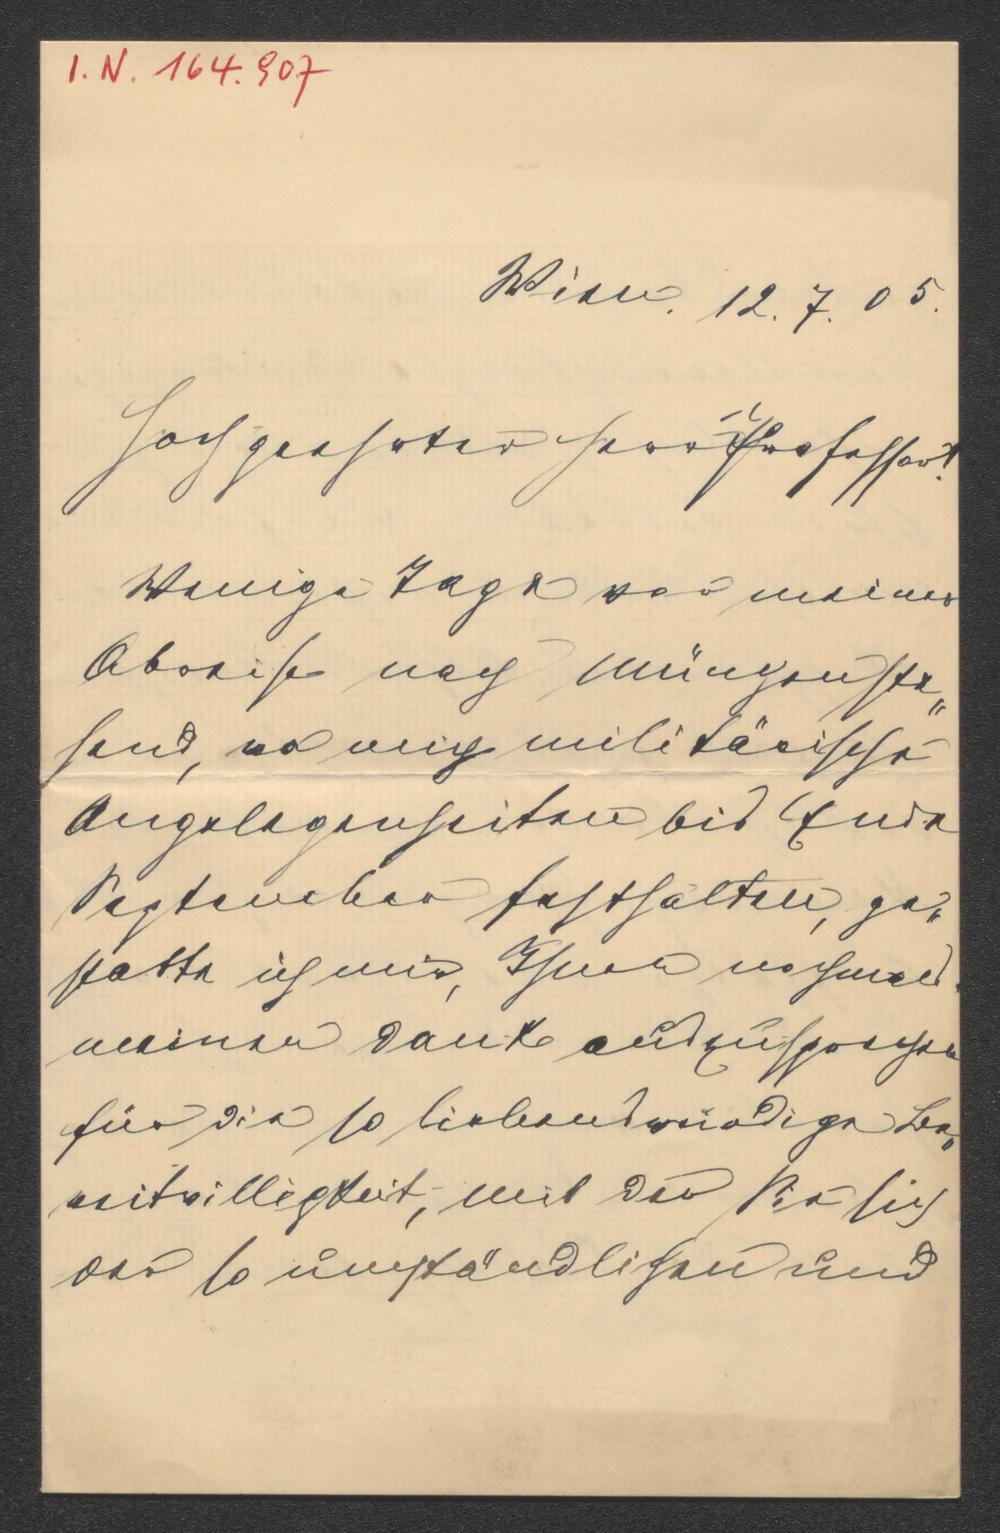 I. N. 164.907
Wien. 12. 7. 05.
Hochgeehrter Herr Professor!
Wenige Tage vor meiner
Abreise nach
wo mich militärische
Angelegenheiten bis Ende
September festhalten, ge„
statte ich mir, Ihnen nochmals
meinen Dank auszusprechen
für die so liebenswürdige Be„
reitwilligkeit, mit der Sie sich
der so umständlichen und